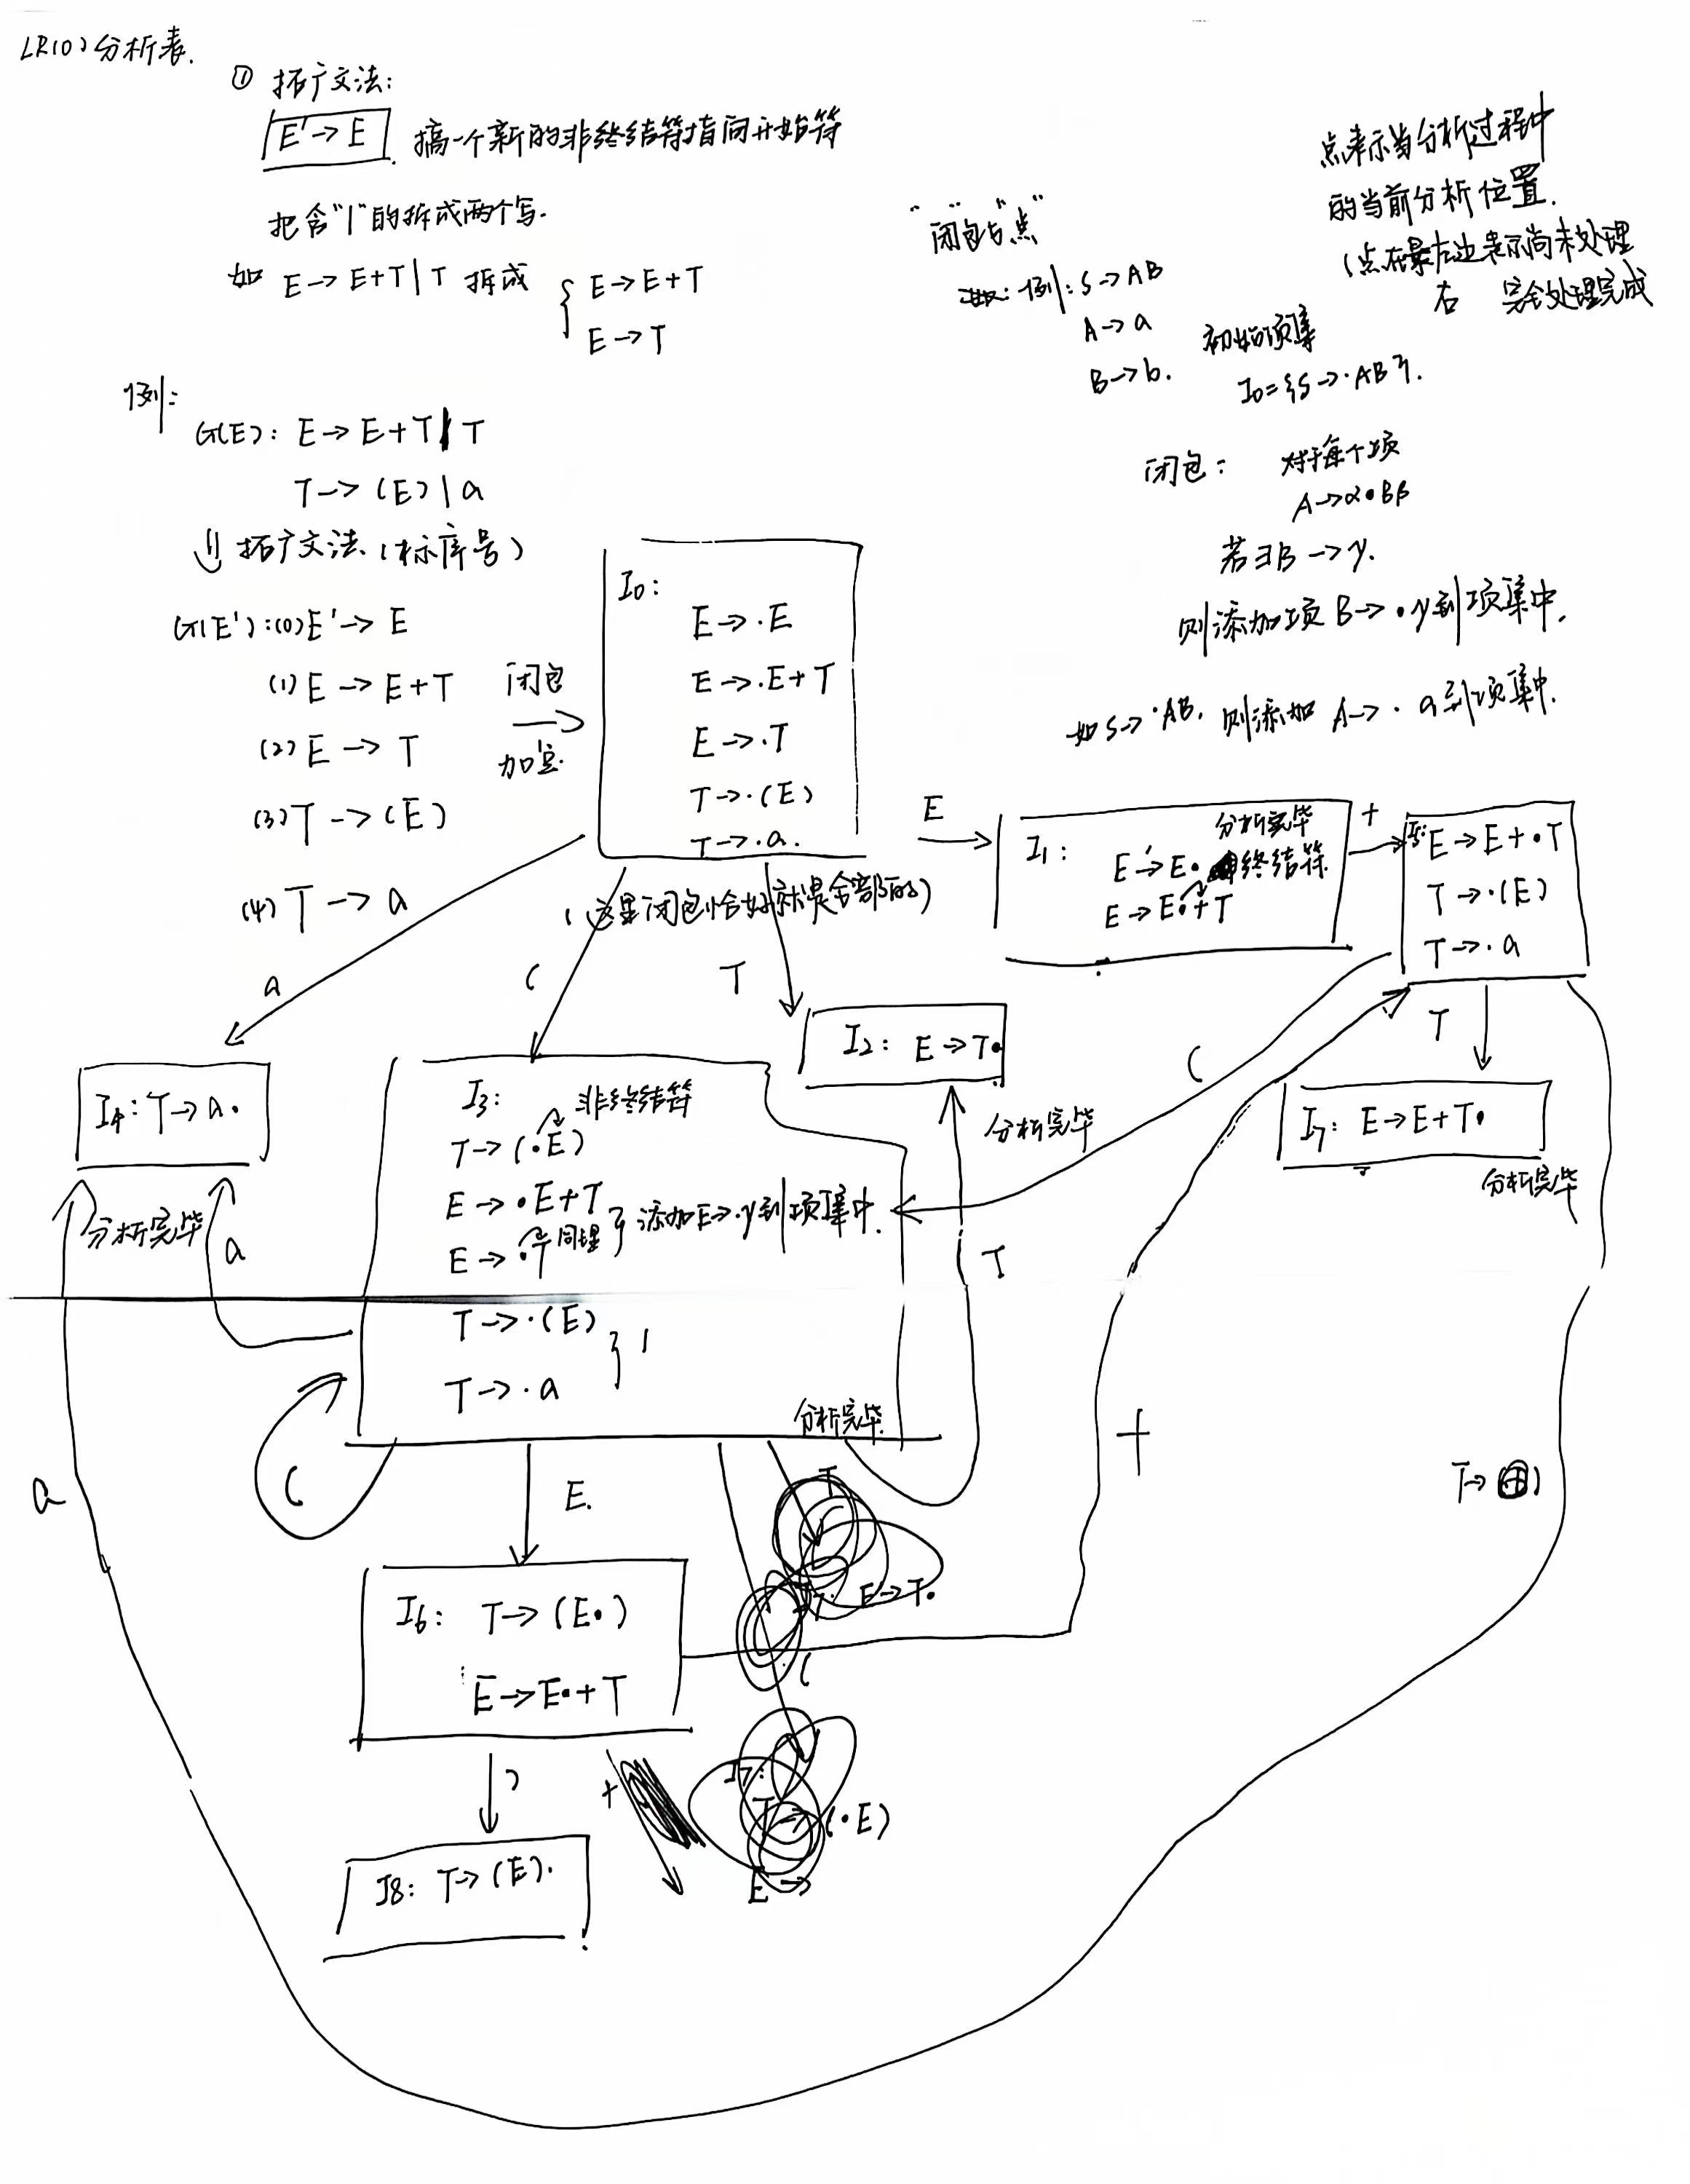 LR(0)分析表.
① 拓广文法:
E'→E. 搞一个新的非终结符指向开始符
把含"|"的拆成两个写.
如 E→E+T|T 拆成 { E→E+T
E→T
例:
G(E): E→E+T|T
T→(E)|a
⇓ 拓广文法(标序号)
G(E'):(0)E'→E
(1)E→E+T
(2)E→T
(3)T→(E)
(4)T→a
闭包
加点
"闭包与点"
例:S→AB
A→a
B→b.
初始项集
I0={S→·AB}.
点表示当分析过程中
的当前分析位置.
(点在最左边表示尚未处理
右 完全处理完成
闭包: 对于每个项
A→α·Bβ
若∃B→γ.
则添加项B→·γ到项集中.
如S→·AB. 则添加 A→·a到项集中.
I0:
E→·E
E→·E+T
E→·T
T→·(E)
T→·a.
(这里闭包恰好就是全部的)
E
I1: 分析完毕
E'→E· 终结符
E→E·+T
+
I5:E→E+·T
T→·(E)
T→·a
a
(
T
I2: E→T·
分析完毕
(
T
I7: E→E+T·
分析完毕
I4:T→a·
分析完毕
a
I3: 非终结符
T→(·E)
E→·E+T
E→·T 同理 } 添加E→·γ到项集中.
T→·(E)
T→·a
分析完毕
T
(
a
E.
+
T→
T
E→T·
(
I6: T→(E·)
E→E·+T
)
+
I7:
(·E)
E→
I8: T→(E)·